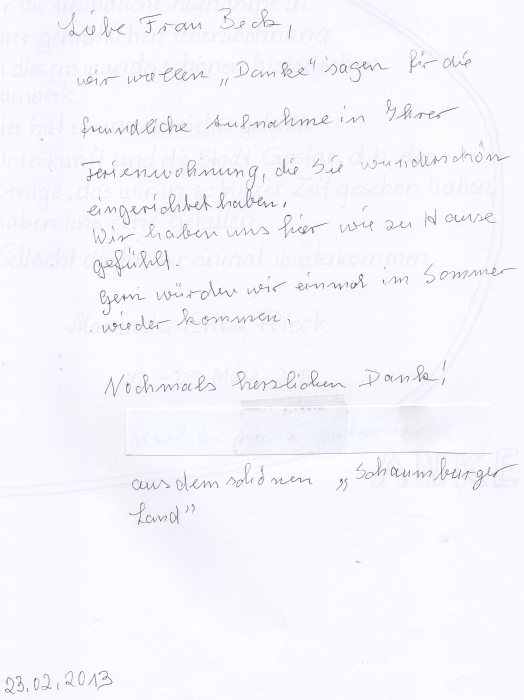 Liebe Frau Beck,
wir wollen „Danke“ sagen für die
freundliche Aufnahme in Ihrer
Ferienwohnung, die Sie wunderschön
eingerichtet haben.
Wir haben uns hier wie zu Hause
gefühlt.
Gern würden wir einmal im Sommer
wieder kommen.
Nochmals herzlichen Dank!
aus dem schönen „Schaumburger
Land”
23.02.2013